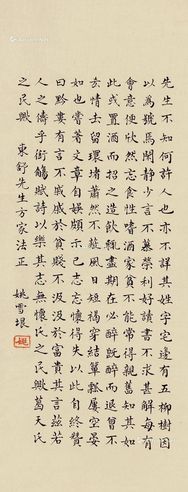 先生不知何許人也亦不詳其姓字宅邊有五柳樹因
以為號焉閑靜少言不慕榮利好讀書不求甚解每有
會意便欣然忘食性嗜酒家貧不能常得親舊知其如
此或置酒而招之造飲輒盡期在必醉既醉而退曾不
吝情去留環堵蕭然不蔽風日短褐穿結簞瓢屢空晏
如也嘗著文章自娛頗示己志忘懷得失以此自終贊
曰黔婁有言不戚戚於貧賤不汲汲於富貴其言茲若
人之儔乎銜觴賦詩以樂其志無懷氏之民歟葛天氏
之民歟
東舒先生方家法正
姚雪垠